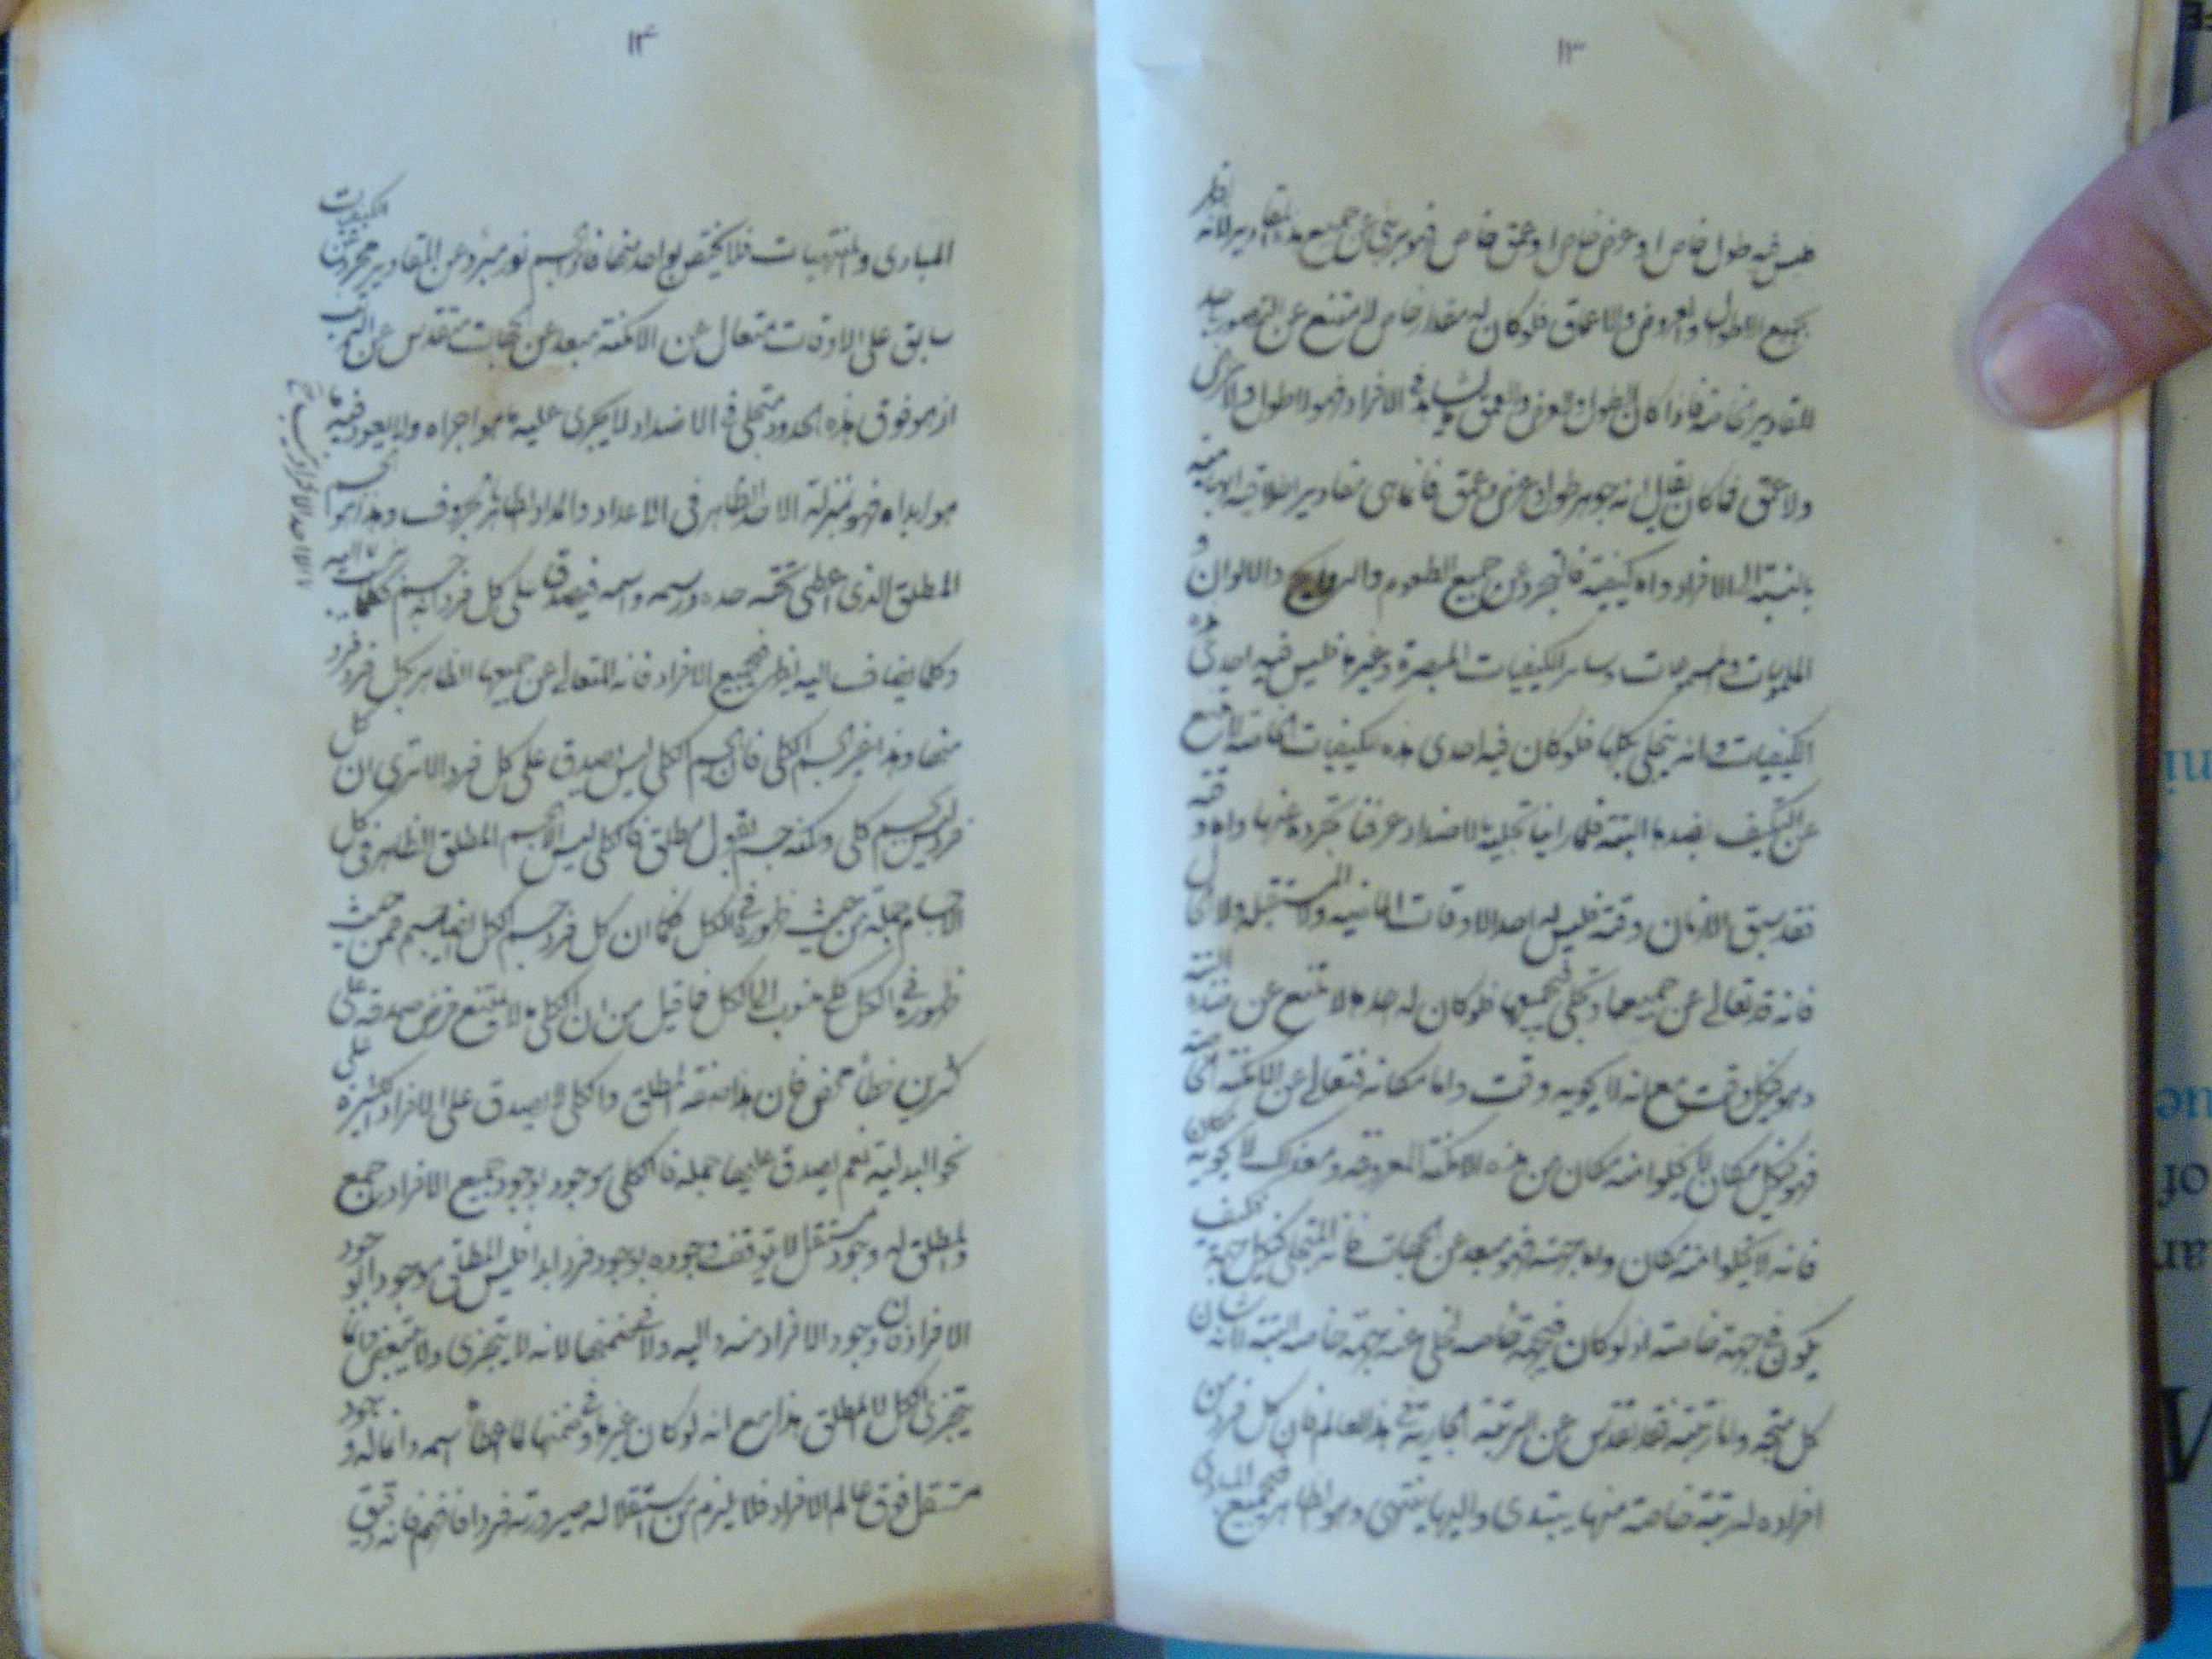 ١٣
فليس فيه طول خاص او عرض خاص او عمق خاص فهو برئ عن جميع هذه المقادير لانه يظهر
بجميع الاطوال والعروض والاعماق فلو كان له مقدار خاص لامتنع عن التصور باحد
المقادير الخاصة فاذا كان الطول والعرض والعمق في الافراد فهو لا طول ولا عرض
ولا عمق فما كان يقال انه جوهر طول وعرض وعمق فانما هي مقادير اطلاقية
بالنسبة الى الافراد واما كيفيته فانه مجرد عن جميع الطعوم والروايح والالوان و
الملموسات والمسموعات وساير الكيفيات المبصرة وغيرها فليس فيه احدى هذه
الكيفيات وانه يتجلى بكلها فلو كان فيه احدى هذه الكيفيات الخاصة لامتنع
عن التكيف بضدها البتة فلما راينا تجليه بالاضداد عرفنا تجرده عنها واما وقته
فقد سبق الازمان وقته فليس له احد الاوقات الماضية ولا المستقبلة ولا الحال
فانه قد تعالى عن جميعها وتجلى بجميعها فلو كان له احدها لامتنع عن ضده البتة
وهو في كل وقت مع انه لا يحويه وقت واما مكانه فتعالى عن الامكنة الخاصة
فهو في كل مكان لا يخلوا منه مكان من هذه الامكنة المعروفة ومع ذلك لا يحويه مكان
فانه لا يخلوا منه مكان واما جهته فهو مبعد عن الجهات فانه المتجلي في كل جهة فكيف
يكون في جهة خاصة اذ لو كان في جهة خاصة لخلى عنه جهة خاصة البتة لانه شان
كل متجه واما رتبته فقد تقدس عن الرتبة الجارية في هذا العالم فان كل فرد من
افراده له رتبة خاصة منها يبتدى واليها ينتهى وهو الظاهر في جميع المبادى
١٤
المبادى والمنتهيات فلا يختص بواحد منها فالجسم نور مبرؤ عن المقادير مجرد عن الكيفيات
سابق على الاوقات متعال عن الامكنة مبعد عن الجهات متقدس عن الرتب
اذ هو فوق هذه الحدود متجلي في الاضداد لا يجرى عليه ما هو اجراه ولا يعود فيه ما
هو ابداه فهو بمنزلة الاحد الظاهر في الاعداد والمداد الظاهر في الحروف وهذا هو الجسم
المطلق الذى اعطى تحته حده ورسمه واسمه فيصدق على كل فرد انه جسم فكلما ينسب اليه
وكلما يضاف اليه يظهر في جميع الافراد فانه المتعالى عن جميعها الظاهر بكل فرد فرد
منها وهذا غير الجسم الكلى فان الجسم الكلى ليس يصدق على كل فرد الا ترى ان كل
فرد ليس بجسم كلى ولكنه جسم بقول مطلق فالكلى ليس الا الجسم المطلق الظاهر في كل
الاجسام جملة من حيث ظهوره في الكل فكما ان كل فرد جسم الكل ايضا جسم فمن حيث
ظهوره في الكل كلى منسوب الى الكل فما قيل من ان الكلى ما لا يمتنع فرض صدقه على
كثيرين خطأ محض فان هذا صفة المطلق والكلى لا يصدق على الافراد الكثيرة على
نحو البدلية نعم يصدق عليها جملة فالكلى موجود بوجود جميع الافراد من جميع
والمطلق له وجود مستقل لا يتوقف وجوده بوجود فرد ابدا فليس المطلق موجودا بوجود
الافراد فان وجود الافراد منه واليه ولا في ضمنها لانه لا يتجزى ولا يتبعض فانما
يتجزى الكل لا المطلق هذا مع انه لو كان غيرها وفي ضمنها لما اعطاه اسمه وافعاله وجود
مستقل فوق عالم الافراد فلا يلزم من استقلاله صيرورته فردا فافهم فانه دقيق